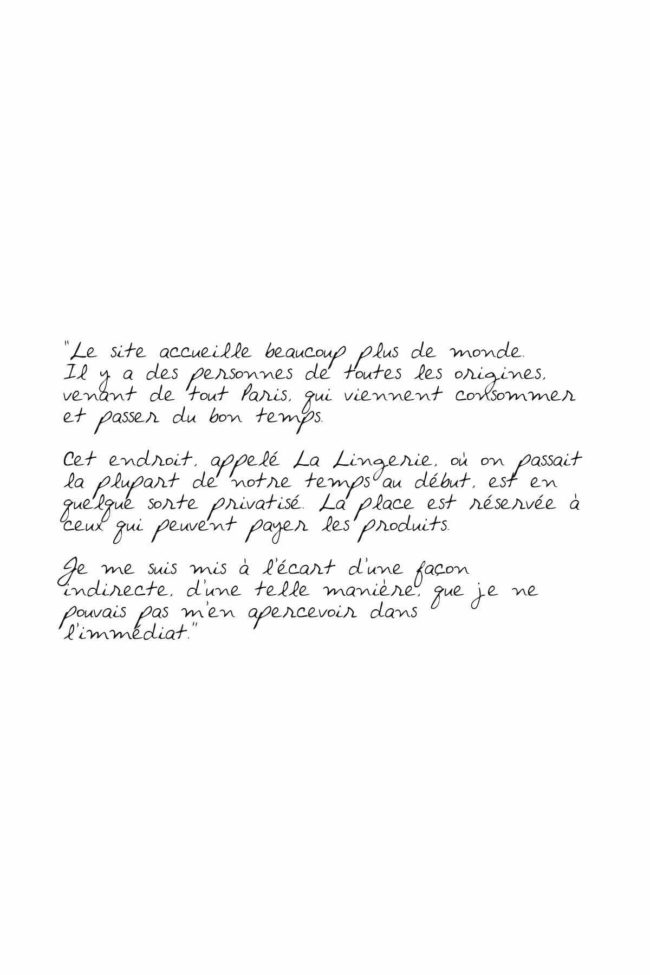 "Le site accueille beaucoup plus de monde.
Il y a des personnes de toutes les origines,
venant de tout Paris, qui viennent consommer
et passer du bon temps.
Cet endroit, appelé La Lingerie, où on passait
la plupart de notre temps au début, est en
quelque sorte privatisé. La place est réservée à
ceux qui peuvent payer les produits.
Je me suis mis à l'écart d'une façon
indirecte, d'une telle manière, que je ne
pouvais pas m'en apercevoir dans
l'immédiat."